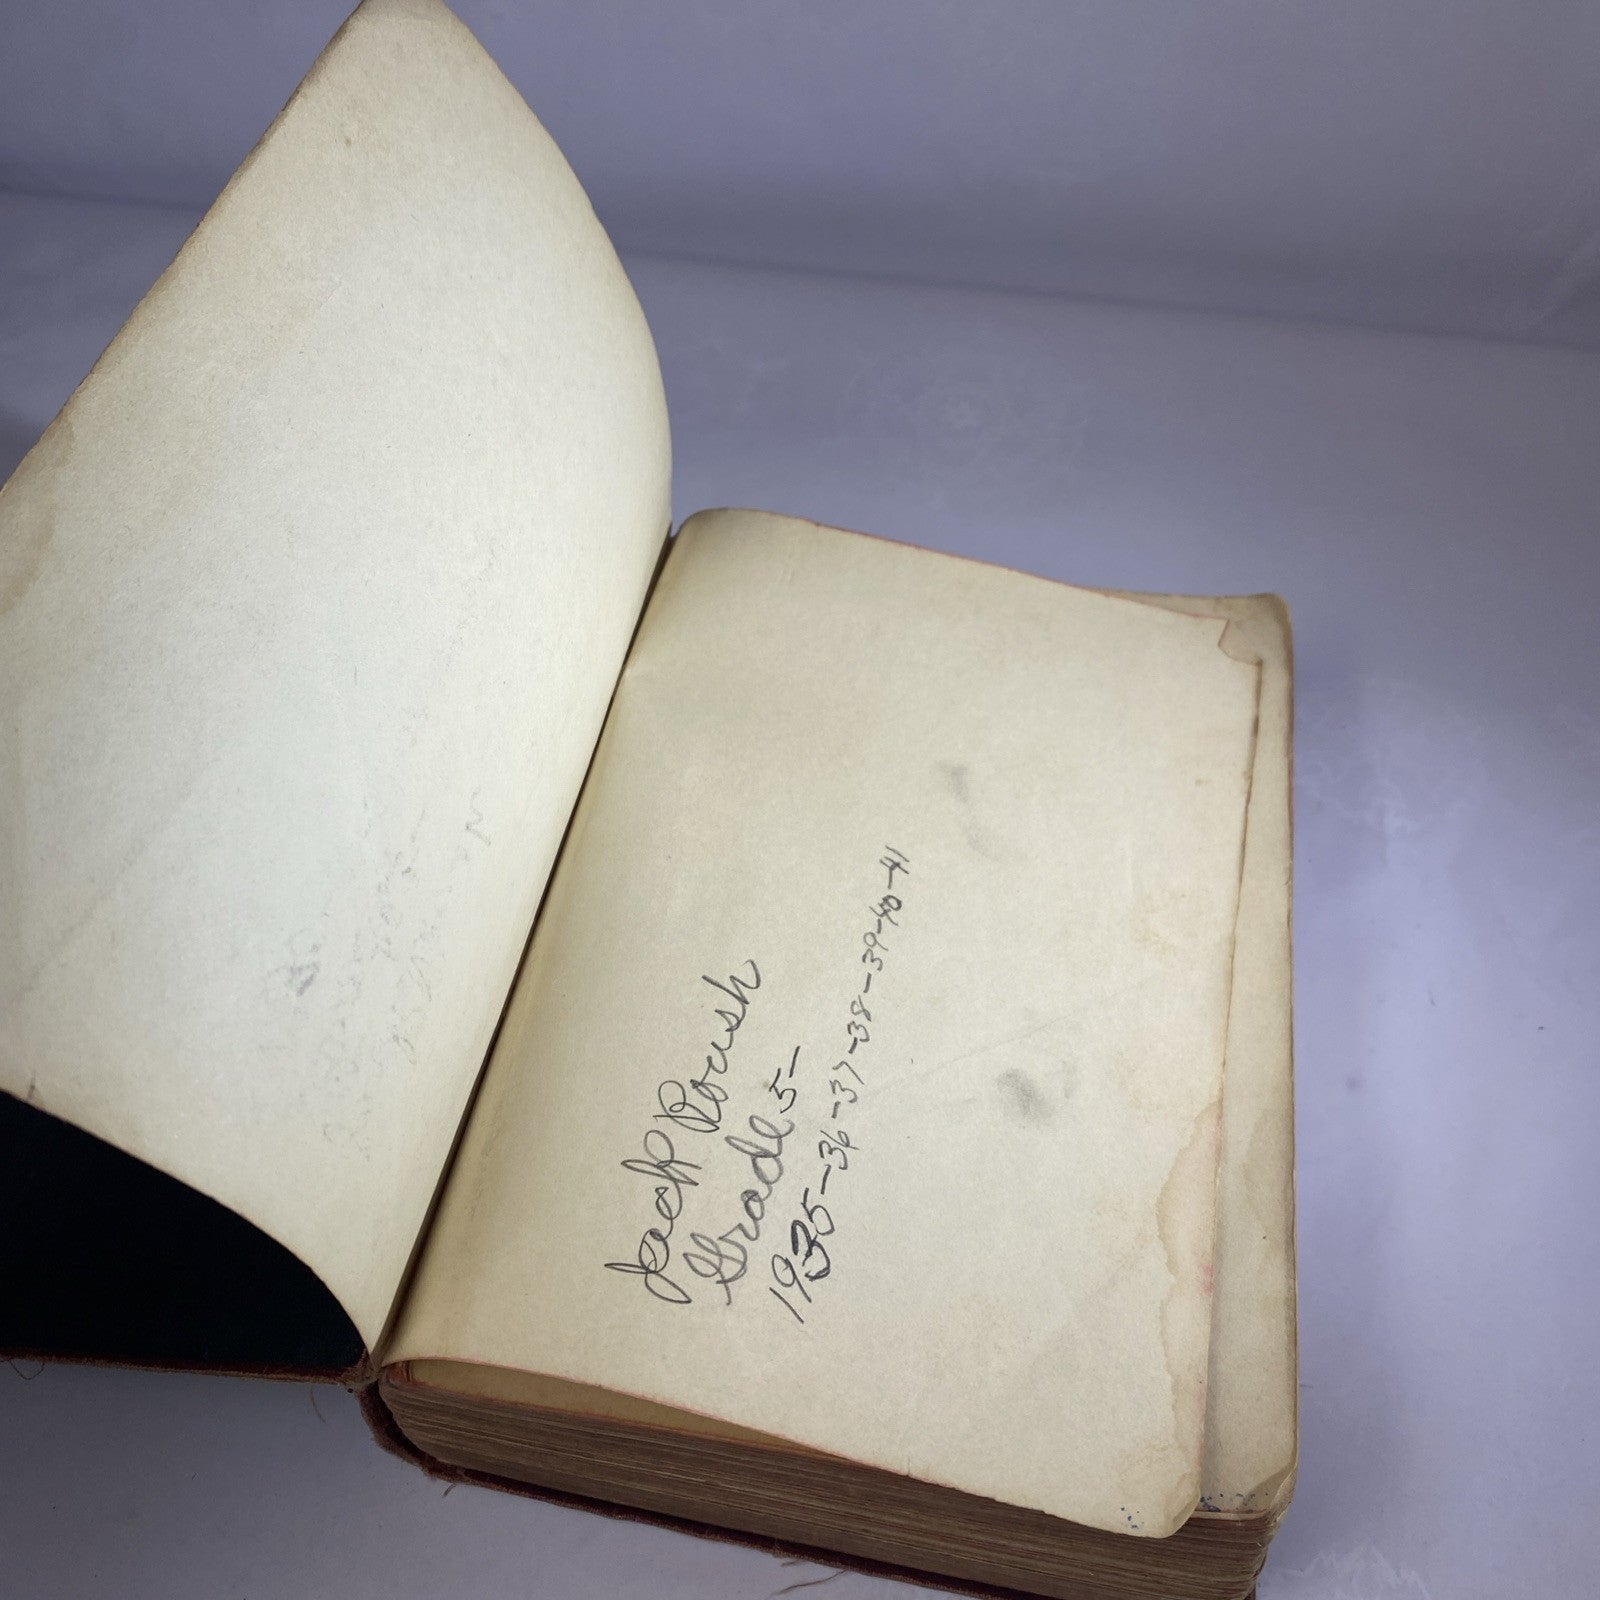 Jack Roush
Grade 5-
1935-36-37-38-39-40-41